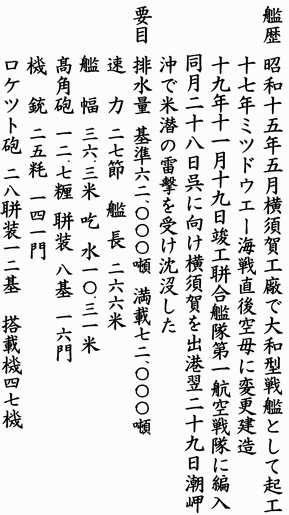 艦歴 昭和十五年五月横須賀工廠で大和型戦艦として起工
十七年ミツドウエー海戦直後空母に変更建造
十九年十一月十九日竣工聯合艦隊第一航空戦隊に編入
同月二十八日呉に向け横須賀を出港翌二十九日潮岬
沖で米潜の雷撃を受け沈没した
要目 排水量 基準六二、〇〇〇噸 満載七二、〇〇〇噸
速力 二七節 艦長 二六六米
艦幅 三六.三米 吃水一〇.三一米
高角砲 一二.七糎 聯装 八基 一六門
機銃 二五粍 一四一門
ロケツト砲 二八聯装一二基 搭載機四七機